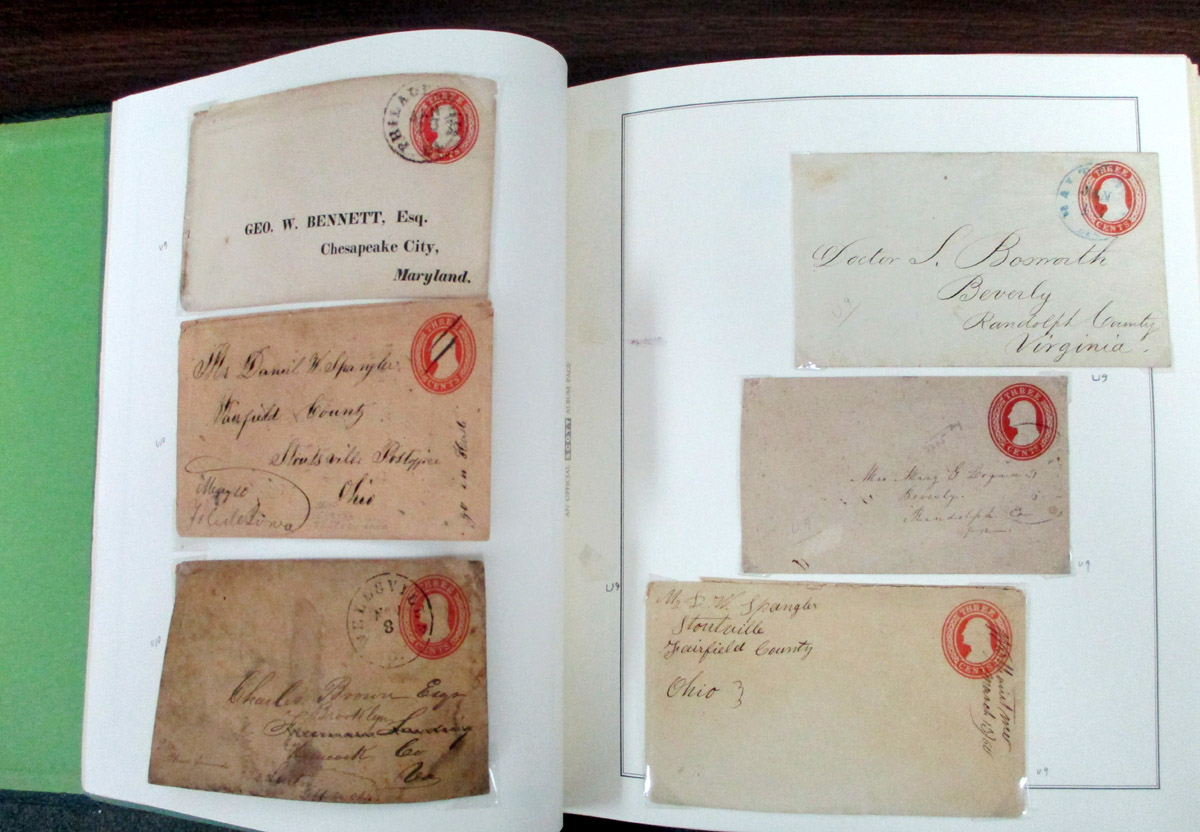 PHILAD
THREE
CENTS
GEO. W. BENNETT, Esq.
Chesapeake City,
Maryland.
U9
THREE
CENTS
Mr Daniel W. Spangler
Fairfield County
Stoutsville Postoffice
Ohio
go in
May 10
U10
WELLSVI
8
THREE
CENTS
Charles Brown Esqr
Brooklyn
Freemans Landing
Hancock Co
Va
U10
AN OFFICIAL SCOTT ALBUM PAGE
THREE
CENTS
Doctor S. Bosworth
Beverly
Randolph County
Virginia.
U9
U9
THREE
CENTS
Mrs Mary G
Beverly
Randolph Co
U9
U9
THREE
CENTS
Mr D. W. Spangler
Stoutville
Fairfield County
Ohio
March 13/60
U9